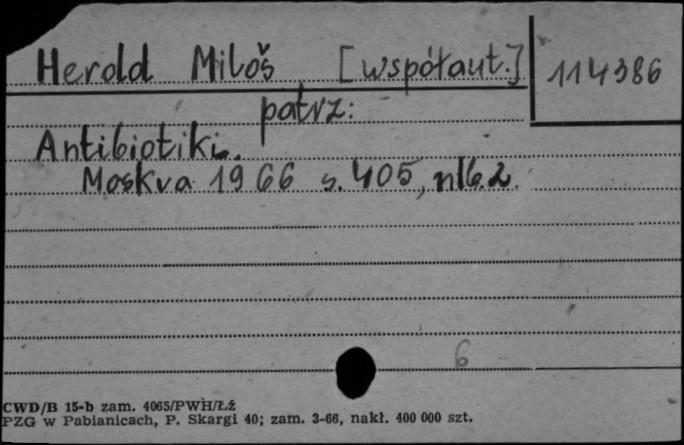 Herold Miloš [współaut.] 114386
patrz:
Antibiotiki.
Moskva 1966 s. 405, nlb. 2.
6
CWD/B 15-b zam. 4065/PWH/Łź
PZG w Pabianicach, P. Skargi 40; zam. 3-66, nakł. 400 000 szt.